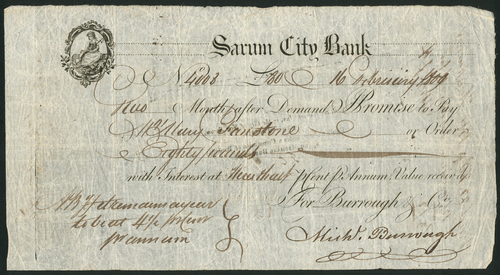 Sarum City Bank
No 4008 £80 16 February 1809
Two Months after Demand I Promise to Pay
Mrs Mary Fanstone or Order
Eighty pounds
with Interest at Three & half P Cent P Annum Value received
For Burrough & Co
Michl. Burrough
NB If it remains a year
to be at 4 P Cent
P annum